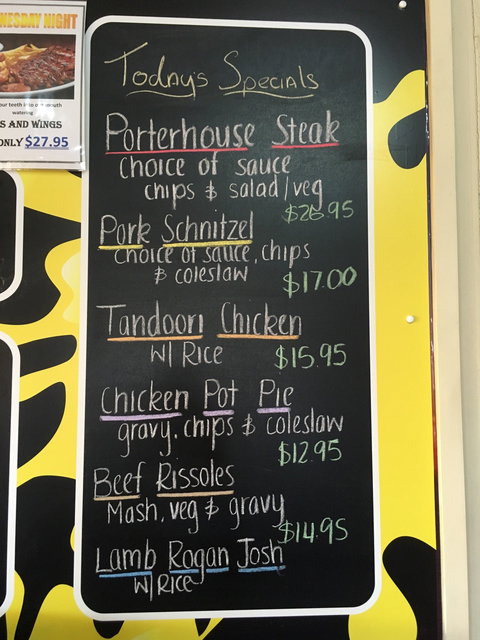 NESDAY NIGHT
our teeth into our mouth
watering
S AND WINGS
ONLY $27.95
Today's Specials
Porterhouse Steak
Choice of sauce
chips & salad/veg
$26.95
Pork Schnitzel
Choice of sauce, chips
& coleslaw
$17.00
Tandoori Chicken
w/ Rice
$15.95
Chicken Pot Pie
gravy, chips & coleslaw
$12.95
Beef Rissoles
Mash, veg & gravy
$14.95
Lamb Rogan Josh
w/ Rice